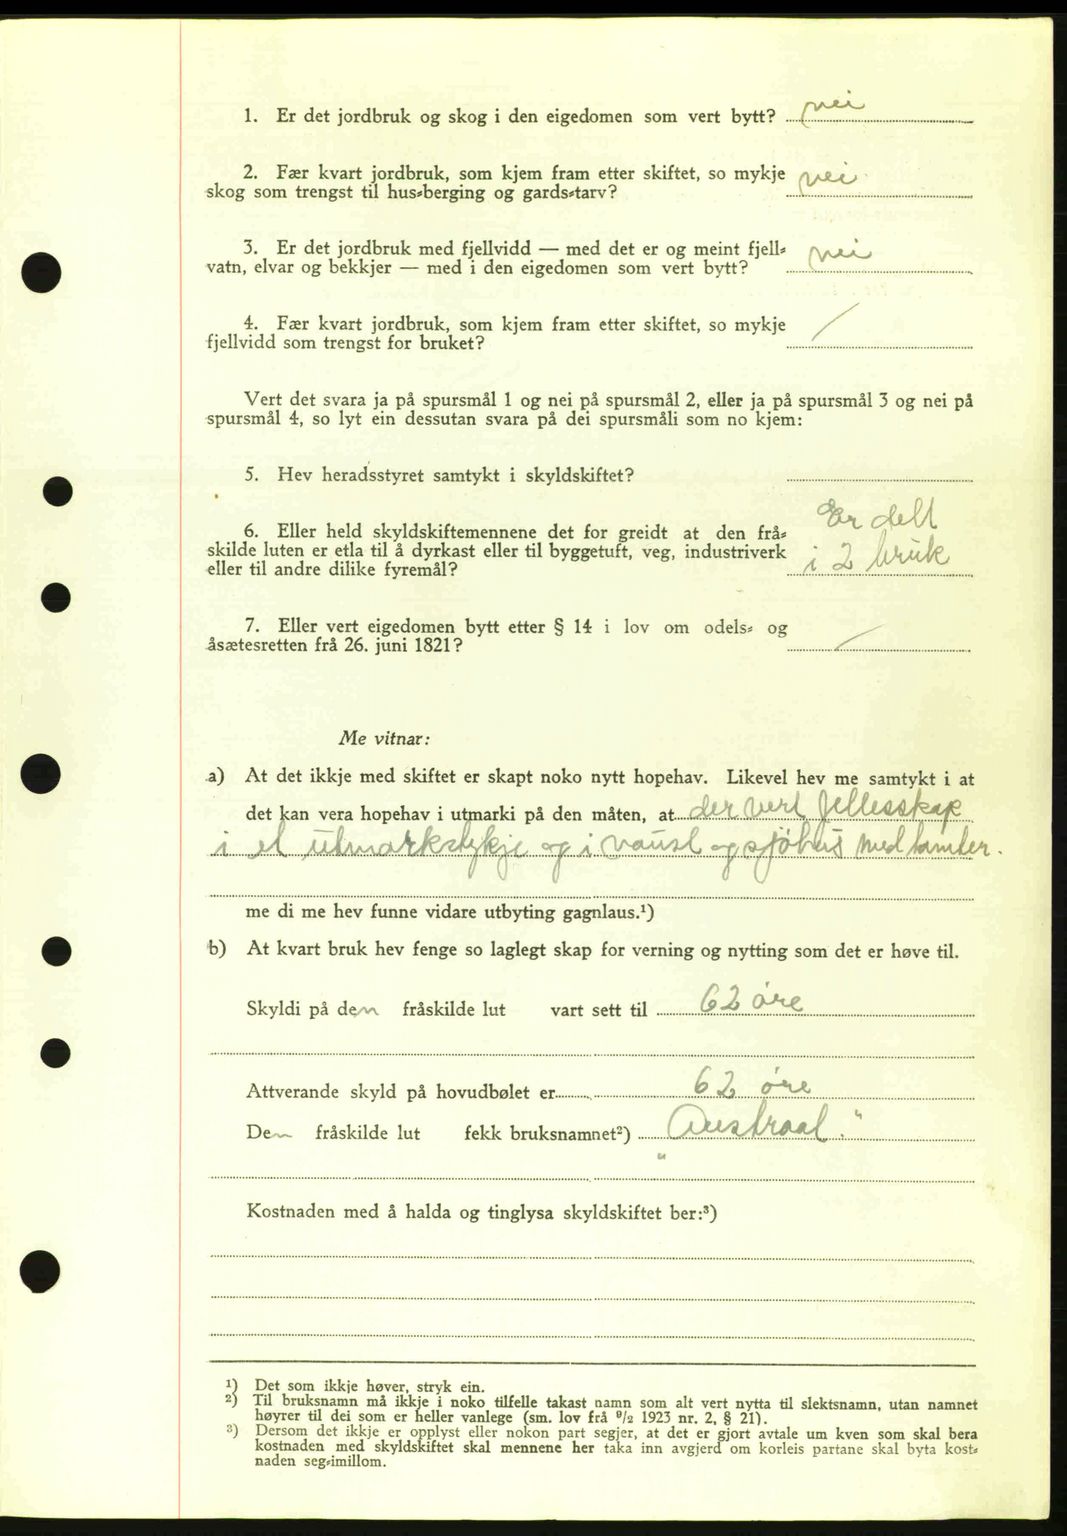 1. Er det jordbruk og skog i den eigedomen som vert bytt? nei
2. Fær kvart jordbruk, som kjem fram etter skiftet, so mykje
skog som trengst til hus-berging og gards-tarv? nei
3. Er det jordbruk med fjellvidd — med det er og meint fjell-
vatn, elvar og bekkjer — med i den eigedomen som vert bytt? nei
4. Fær kvart jordbruk, som kjem fram etter skiftet, so mykje
fjellvidd som trengst for bruket? /
Vert det svara ja på spursmål 1 og nei på spursmål 2, eller ja på spursmål 3 og nei på
spursmål 4, so lyt ein dessutan svara på dei spursmåli som no kjem:
5. Hev heradsstyret samtykt i skyldskiftet?
6. Eller held skyldskiftemennene det for greidt at den frå- Er delt
skilde luten er etla til å dyrkast eller til byggetuft, veg, industriverk i 2 bruk
eller til andre dilike fyremål?
7. Eller vert eigedomen bytt etter § 14 i lov om odels- og
åsætesretten frå 26. juni 1821? /
Me vitnar:
a) At det ikkje med skiftet er skapt noko nytt hopehav. Likevel hev me samtykt i at
det kan vera hopehav i utmarki på den måten, at der vert fellesskap
i et utmarkstykje og i naust og sjöhus med tomter.
me di me hev funne vidare utbyting gagnlaus.¹)
b) At kvart bruk hev fenge so laglegt skap for verning og nytting som det er høve til.
Skyldi på den fråskilde lut vart sett til 62 öre
Attverande skyld på hovudbølet er 62 öre
Den fråskilde lut fekk bruksnamnet²) „Austraal."
Kostnaden med å halda og tinglysa skyldskiftet ber:³)
¹) Det som ikkje høver, stryk ein.
²) Til bruksnamn må ikkje i noko tilfelle takast namn som alt vert nytta til slektsnamn, utan namnet
høyrer til dei som er heller vanlege (sm. lov frå ⁹/₂ 1923 nr. 2, § 21).
³) Dersom det ikkje er opplyst eller nokon part segjer, at det er gjort avtale um kven som skal bera
kostnaden med skyldskiftet skal mennene her taka inn avgjerd om korleis partane skal byta kost-
naden seg-imillom.